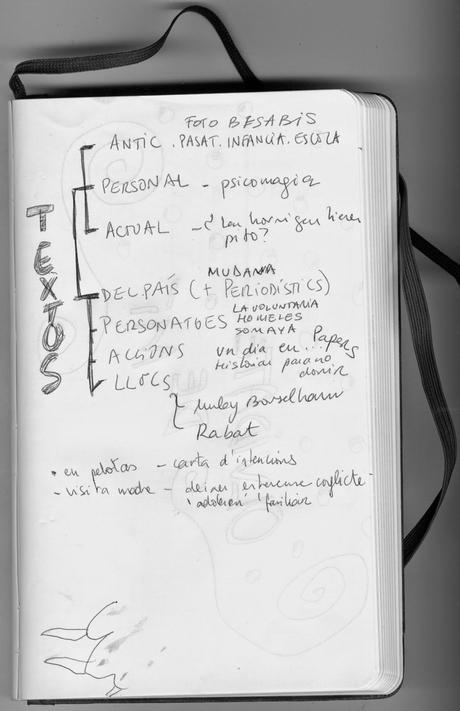 FOTO BESABIS
ANTIC . PASAT. INFANCIA. ESCOLA
PERSONAL - psicomagia
ACTUAL - ¿ Las hormigas tienen
pito?
TEXTOS
MUDANZA
DEL PAÍS (+ PERIODÍSTICS)
PERSONATGES LA VOLUNTARIA
HOMELES
SOMAYA
ACCIONS un dia en... Papers
Historias para no
dormir
LLOCS
Muley Bousselham
Rabat
• en pelotas - carta d'intencions
- visita mode - deixar entreveure conflicte
familiar